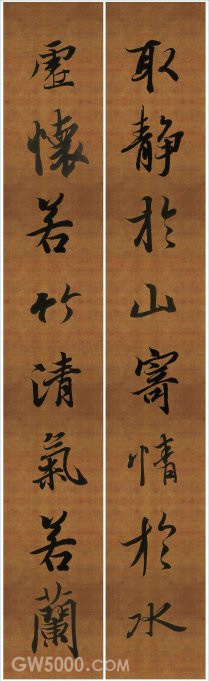 取静於山寄情於水
虚懷若竹清氣若蘭
GW5000.COM